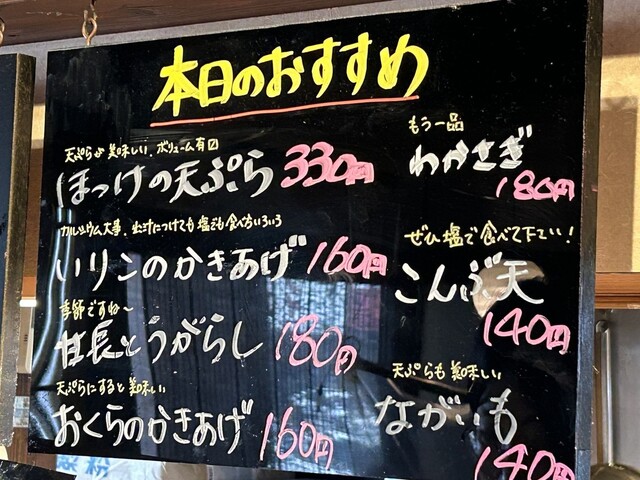 本日のおすすめ
天ぷらが美味しい、ボリューム有り
ほっけの天ぷら 330円
カルシウム大事、出汁につけても塩でも食べ方いろいろ
いりこのかきあげ 160円
季節ですね〜
甘長とうがらし 180円
天ぷらにすると美味しい
おくらのかきあげ 160円
もう一品
わかさぎ
180円
ぜひ塩で食べて下さい!
こんぶ天
140円
天ぷらも美味しい
ながいも
140円